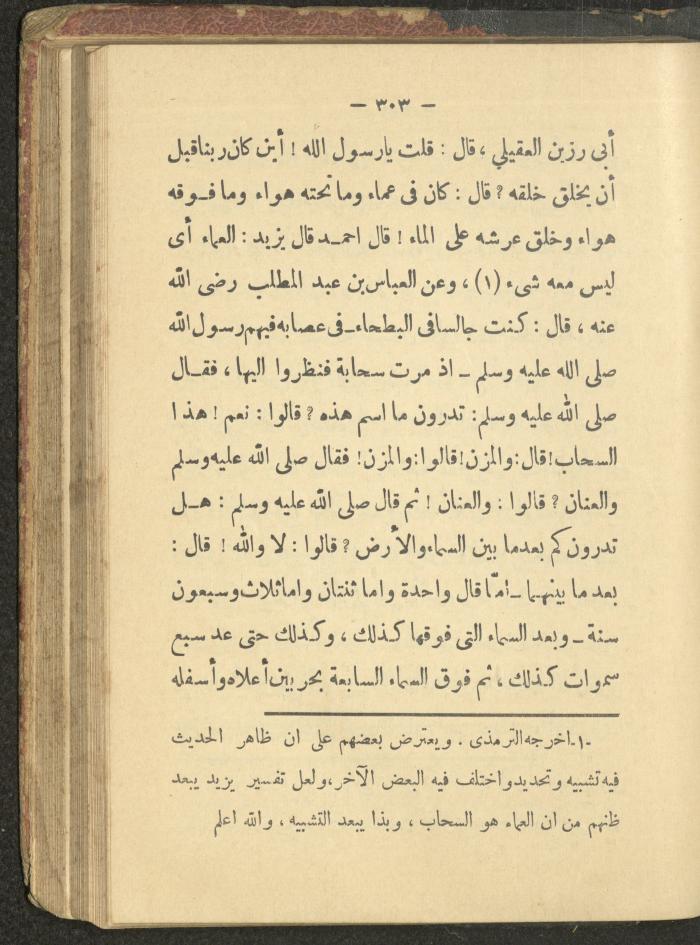 — ٣٠٣ —
أبى رزين العقيلي ، قال : قلت يارسول الله ! أين كان ربنا قبل
أن يخلق خلقه ? قال : كان فى عماء وما تحته هواء وما فوقه
هواء وخلق عرشه على الماء ! قال احمد قال يزيد : العماء أى
ليس معه شىء (١) ، وعن العباس بن عبد المطلب رضى الله
عنه ، قال : كنت جالسا فى البطحاء ـ فى عصابه فيهم رسول الله
صلى الله عليه وسلم ـ اذ مرت سحابة فنظروا اليها ، فقال
صلى الله عليه وسلم : تدرون ما اسم هذه ? قالوا : نعم ! هذا
السحاب ! قال : والمزن ! قالوا : والمزن ! فقال صلى الله عليه وسلم
والعنان ? قالوا : والعنان ! ثم قال صلى الله عليه وسلم : هل
تدرون كم بعد ما بين السماء والأرض ? قالوا : لا والله ! قال :
بعد ما بينهما ـ امّا قال واحدة واما ثنتان واما ثلاث وسبعون
سنة ـ وبعد السماء التى فوقها كذلك ، وكذلك حتى عد سبع
سموات كذلك ، ثم فوق السماء السابعة بحر بين أعلاه وأسفله
-١- اخرجه الترمذى . ويعترض بعضهم على ان ظاهر الحديث
فيه تشبيه وتحديد واختلف فيه البعض الآخر ، ولعل تفسير يزيد يبعد
ظانهم من ان العماء هو السحاب ، وبذا يبعد التشبيه ، والله اعلم